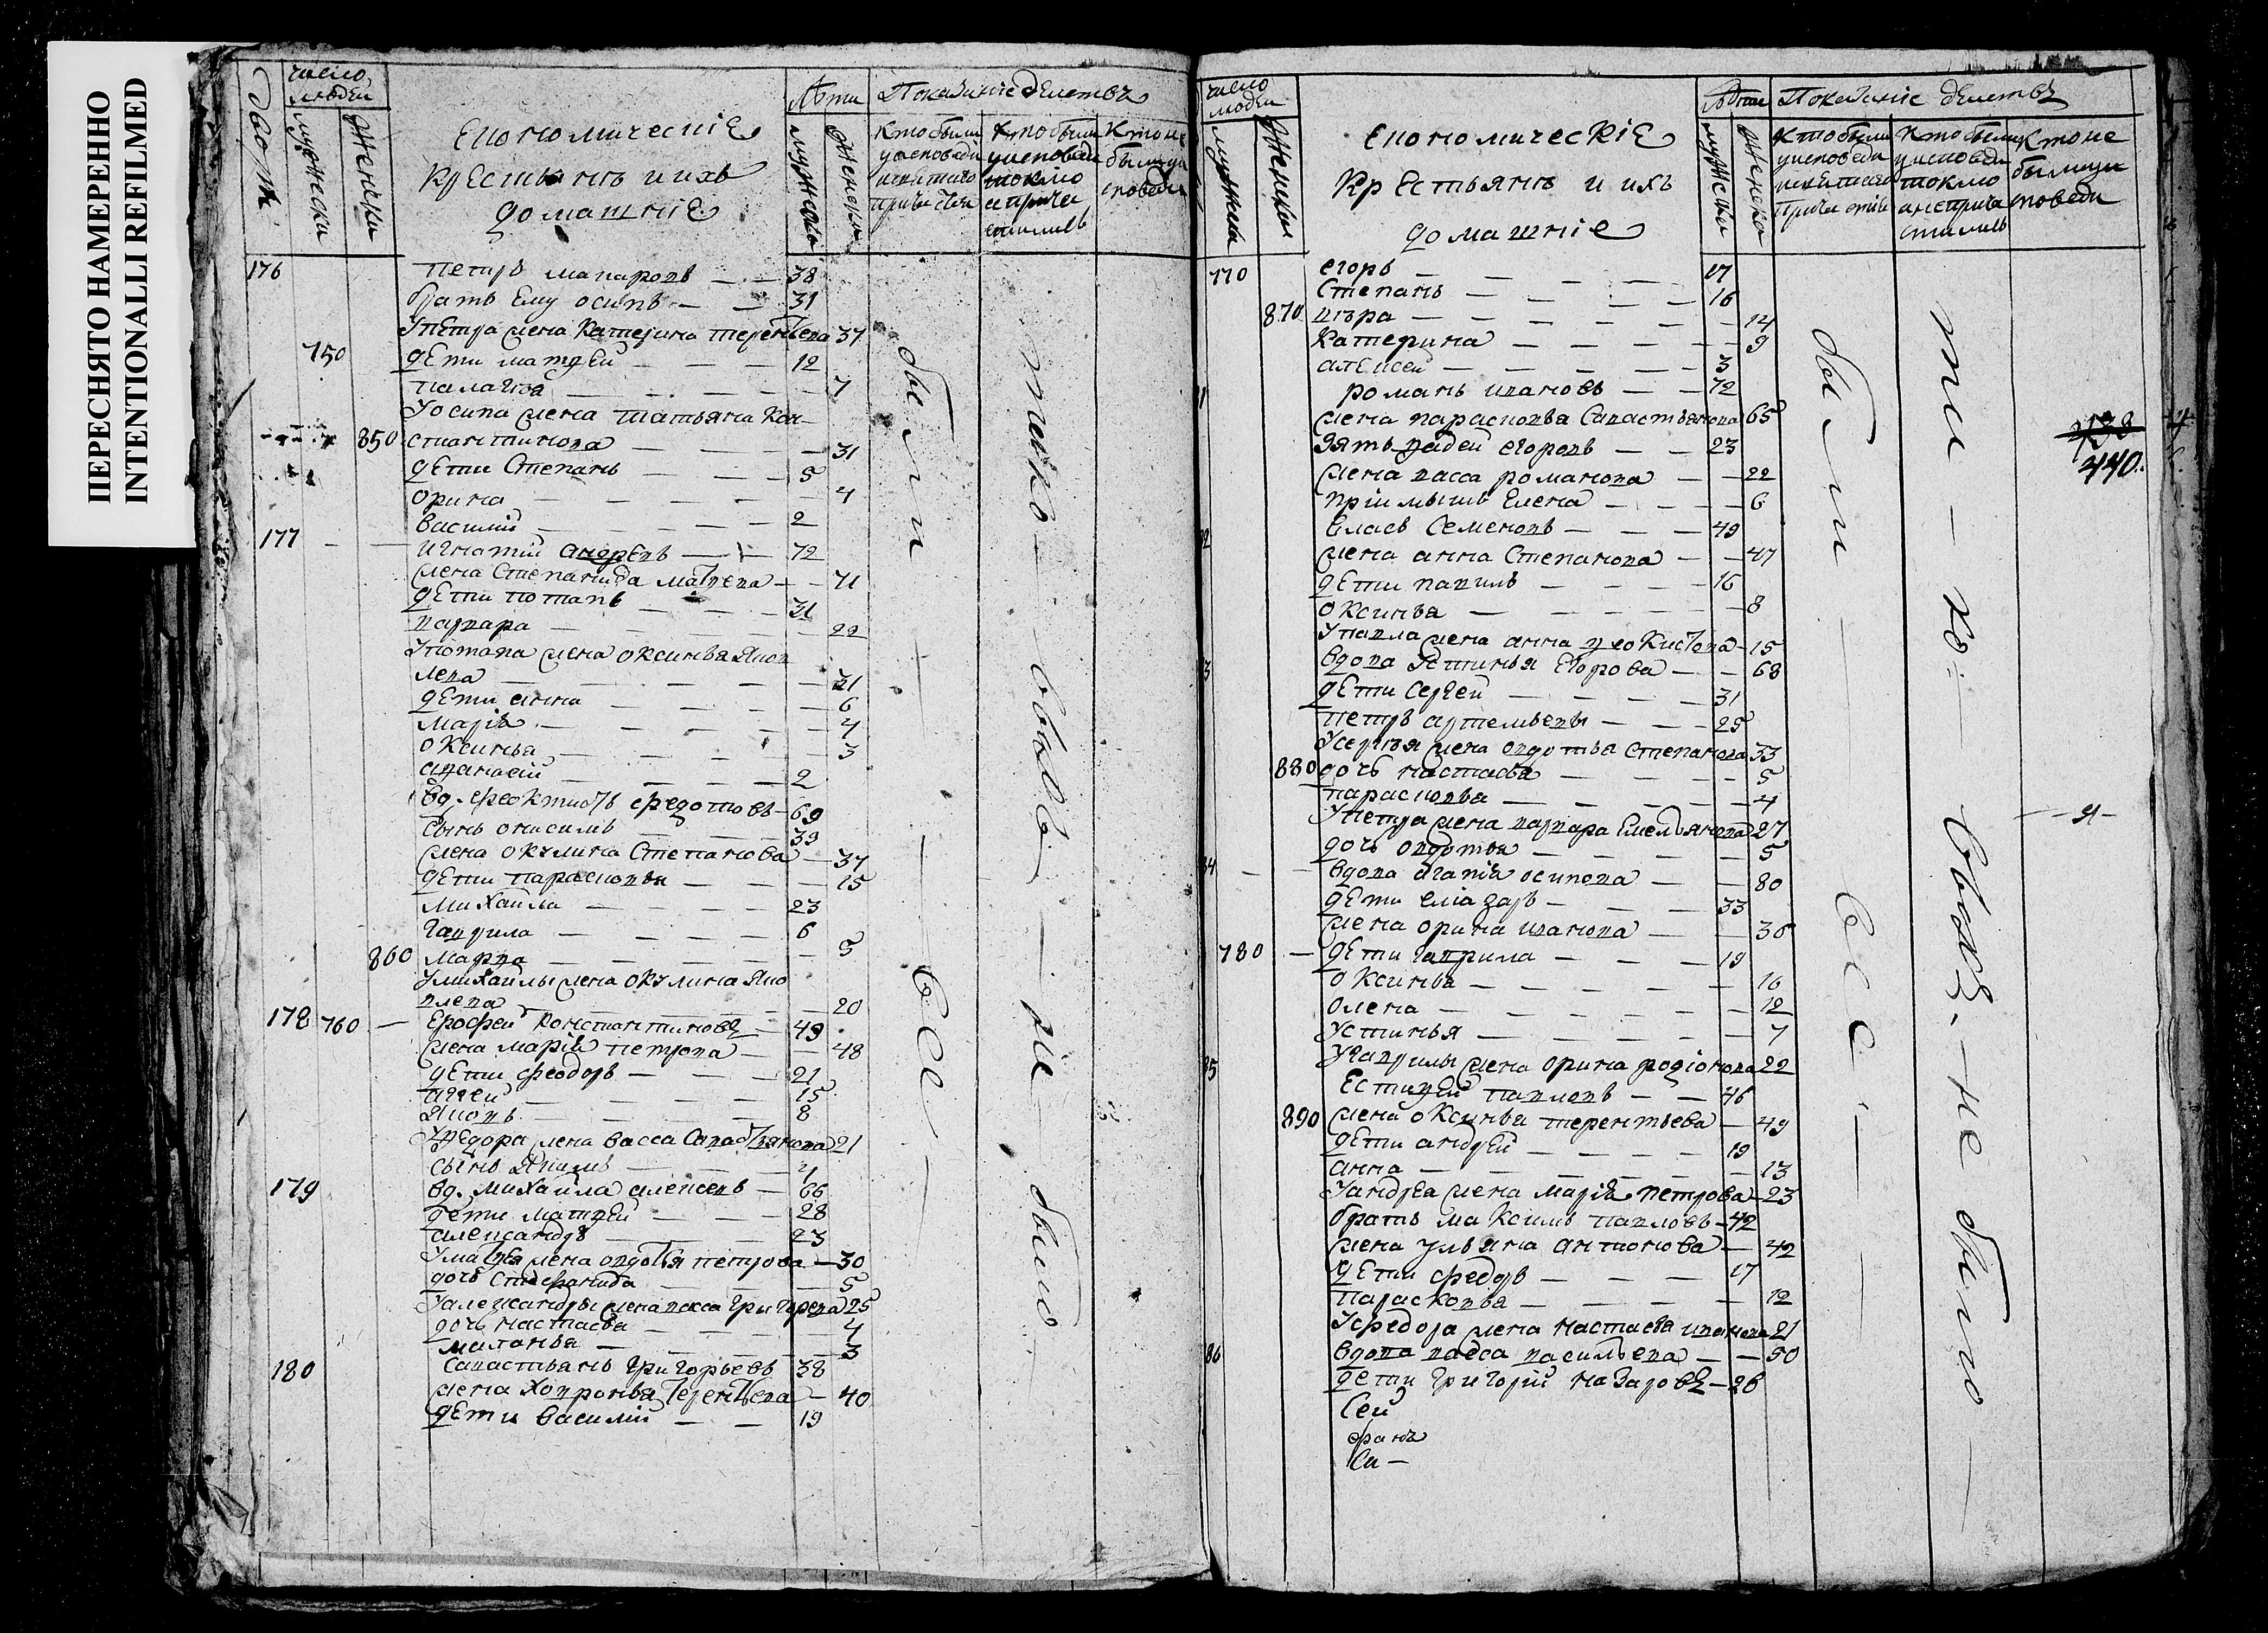 ПЕРЕСНЯТО НАМЕРЕННО
INTENTIONALLI REFILMED
число людей
мужеска
женска
Економическіе
крестьянъ и ихъ
домашніе
Лѣта
мужеска
женска
Показаніе действъ
Кто были у исповеди и святаго причастія
Кто были у исповеди токмо а не причастились
Кто не были у исповеди
176 петръ макаровъ 38
братъ ему осипъ 31
У петра жена катерина терентьева 37
750 дети матфей 12
палагея 7
У осипа жена татьяна кон-
850 стантинова 31
дети степанъ 5
орина 4
василий 2
177 игнатий андреевъ 72
жена степанида матвева 71
дети потапъ 31
варвара 22
У потапа жена оксинья яков
лева 31
дети анна 6
марія 4
оксинья 3
афанасий 2
вд. феоктистъ федотовъ 69
сынъ онисимъ 39
жена окулина степанова 37
дети парасковья 15
михаила 23
гаврила 6
860 марфа 5
у михаилы жена окулина яко
влева 20
178 760 ерофей константиновъ 49
жена марія петрова 48
дети феодоръ 21
аггей 15
яковъ 8
У федора жена васса савастьянова 21
сынъ якимъ 1
179 вд. михаила алексевъ 66
дети матвей 28
александръ 23
У матвея жена овдотья петрова 30
дочь стефанида 5
У александры жена васса григорева 25
дочь настасья 4
маланья 3
180 савастьянъ григорьевъ 38
жена ховронья терентьева 40
дети василий 19
были
все
тако
вовсѣ
не
было
число людей
мужеска
женска
економическіе
крестьянъ и ихъ
домашніе
Лѣта
мужеска
женска
Показаніе действъ
Кто были у исповеди и святаго причастія
Кто были у исповеди токмо а не причастились
Кто не были у исповеди
770 егоръ 17
степанъ 16
870 вѣра 14
катерина 9
алексей 3
романъ ивановъ 72
жена парасковья савастьянова 65
зять фадей егоровъ 23
жена васса романова 22
пріимышъ елена 6
власъ семеновъ 49
жена анна степанова 47
дети павилъ 16
оксинья 8
У павла жена анна феоктистова 15
вдова устинья егорова 68
дети сергей 31
петръ артемьевы 25
У сергея жена овдотья степанова 33
880 дочь настасья 5
парасковья 4
У петра жена варвара емельянова 27
дочь овдотья 5
вдова агафія осипова 80
дети елиазаръ 33
жена орина иванова 36
780 дети гаврила 19
оксинья 16
олена 12
устинья 7
У гаврилы жена орина родіонова 22
естифей павловъ 46
890 жена оксинья терентьева 49
дети андрей 19
анна 13
У андрея жена марія петрова 23
братъ максимъ павловъ 42
жена ульяна антонова 42
дети федоръ 17
парасковья 12
У федора жена настасья иванова 21
86 вдова васса васильева 50
дети григорій назаровъ 26
были
все
вовсѣ
не было
440.